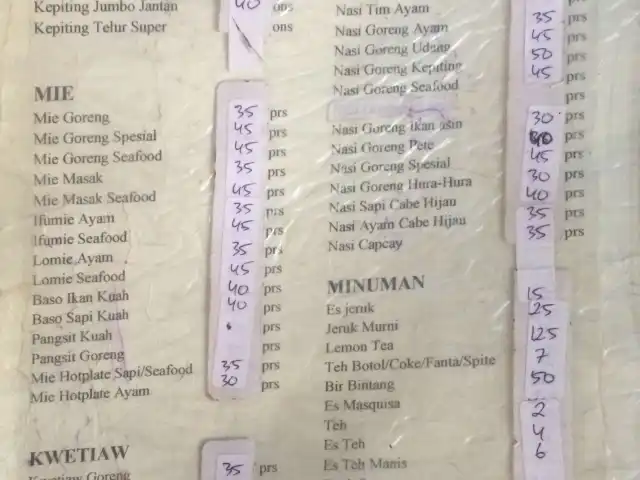 Kepiting Jumbo Jantan 40 ons
Kepiting Telur Super ons
MIE
Mie Goreng 35 prs
Mie Goreng Spesial 45 prs
Mie Goreng Seafood 45 prs
Mie Masak 35 prs
Mie Masak Seafood 45 prs
Ifumie Ayam 35 prs
Ifumie Seafood 45 prs
Lomie Ayam 35 prs
Lomie Seafood 45 prs
Baso Ikan Kuah 40 prs
Baso Sapi Kuah 40 prs
Pangsit Kuah prs
Pangsit Goreng prs
Mie Hotplate Sapi/Seafood 35 prs
Mie Hotplate Ayam 30 prs
KWETIAW
Kwetiaw Goreng 35 prs
Nasi Tim Ayam 35 prs
Nasi Goreng Ayam 45 prs
Nasi Goreng Udang 50 prs
Nasi Goreng Kepiting 45 prs
Nasi Goreng Seafood prs
Nasi Goreng ikan asin 30 prs
Nasi Goreng Pete 40 prs
Nasi Goreng Spesial 45 prs
Nasi Goreng Hura-Hura 30 prs
Nasi Sapi Cabe Hijau 40 prs
Nasi Ayam Cabe Hijau 35 prs
Nasi Capcay 35 prs
MINUMAN
Es jeruk 15
Jeruk Murni 25
Lemon Tea 125
Teh Botol/Coke/Fanta/Spite 7
Bir Bintang 50
Es Masquisa
Teh 2
Es Teh 4
Es Teh Manis 6